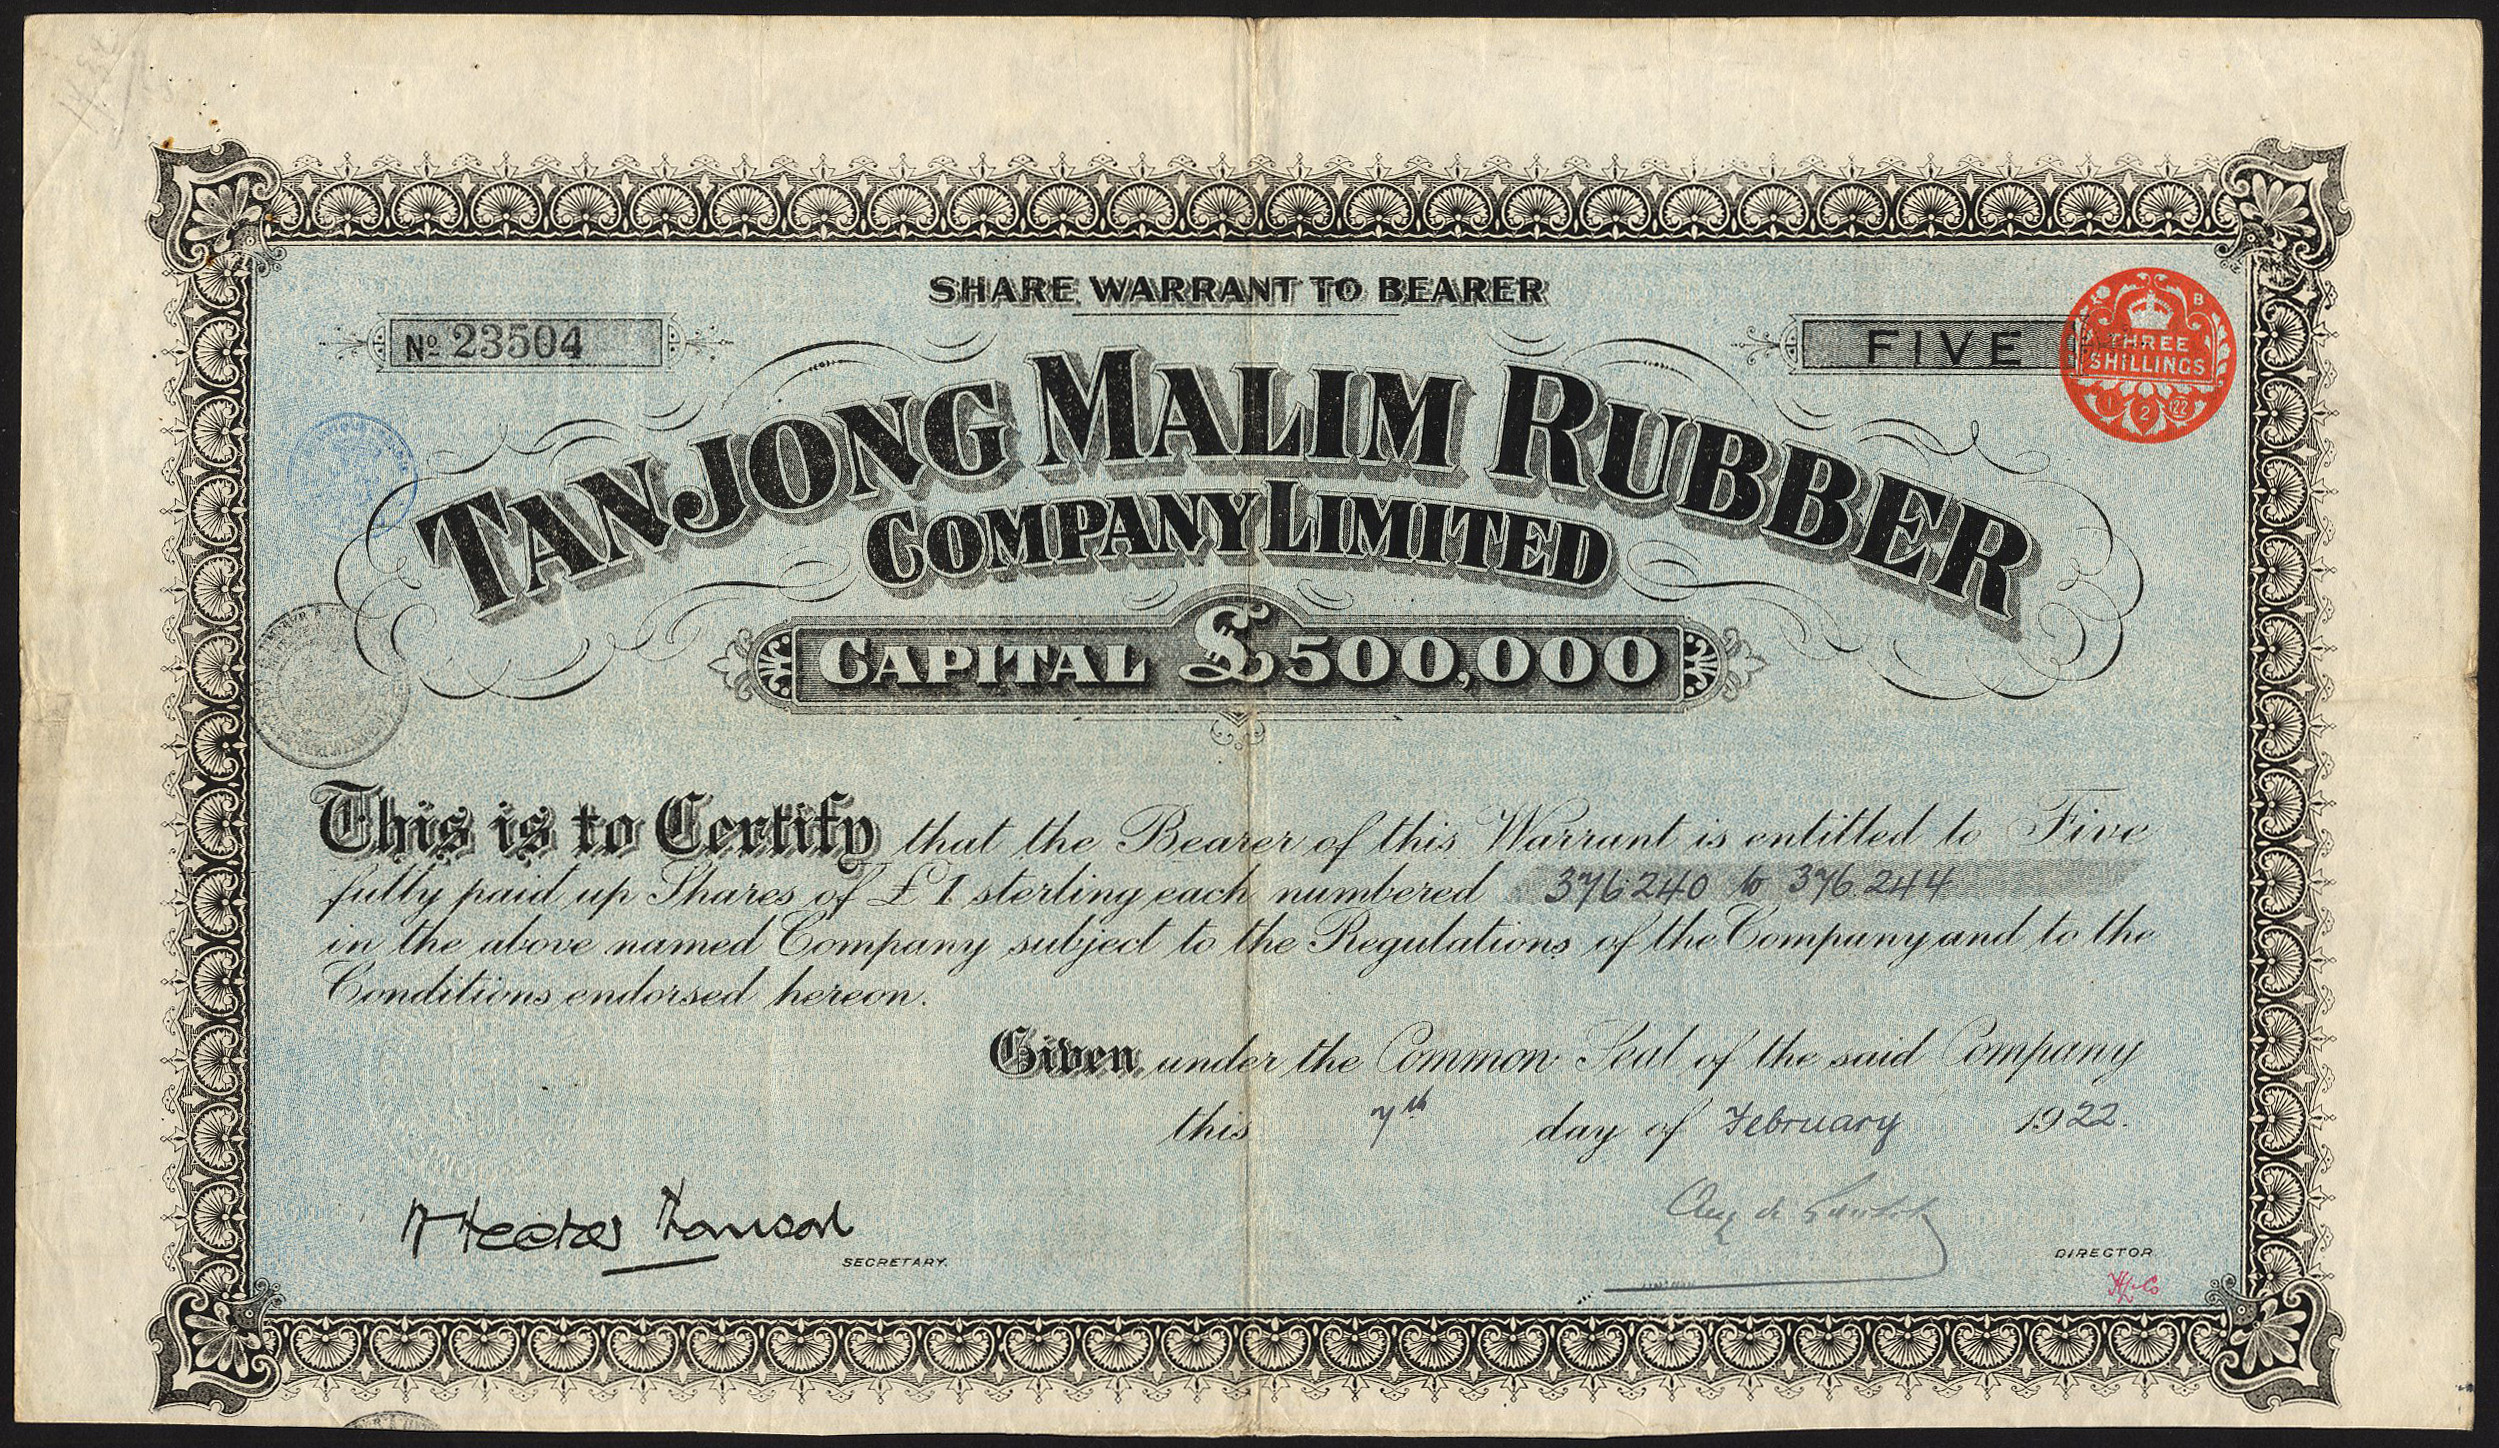 SHARE WARRANT TO BEARER
No 23504
FIVE
B
THREE
SHILLINGS
1 2 22
TANJONG MALIM RUBBER
COMPANY LIMITED
CAPITAL £500,000
This is to Certify that the Bearer of this Warrant is entitled to Five
fully paid up Shares of £1 sterling each numbered 376240 to 376244
in the above named Company subject to the Regulations of the Company and to the
Conditions endorsed hereon.
Given under the Common Seal of the said Company
this 7th day of February 1922.
SECRETARY.
DIRECTOR